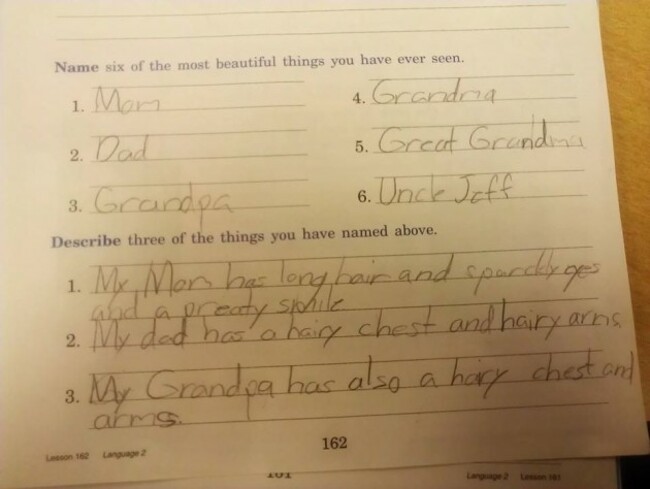 Name six of the most beautiful things you have ever seen.
1. Mom
2. Dad
3. Grandpa
4. Grandma
5. Great Grandma
6. Uncle Jeff
Describe three of the things you have named above.
1. My Mom has long hair and sparckly eyes
and a preaty smile
2. My dad has a hairy chest and hairy arms.
3. My Grandpa has also a hairy chest and
arms.
Lesson 162 Language 2
162
161
Language 2 Lesson 161